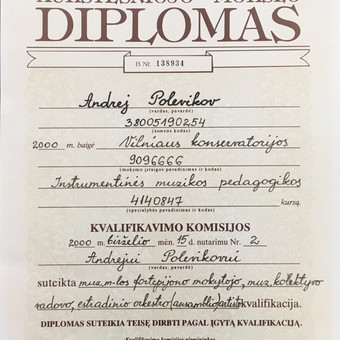 AUKŠTESNIOJO MOKSLO
DIPLOMAS
B Nr. 138934
Andrej Polevikov
(vardas, pavardė)
38005190254
(asmens kodas)
2000 m. baigė Vilniaus konservatorijos
9096666
(mokymo įstaigos pavadinimas ir kodas)
Instrumentinės muzikos pedagogikos
4140847 kursą.
(specialybės pavadinimas ir kodas)
KVALIFIKAVIMO KOMISIJOS
2000 m. birželio mėn. 15 d. nutarimu Nr. 2
Andrejui Polevikovui
(vardas, pavardė)
suteikta muz. m-los fortepijono mokytojo, muz. kolektyvo
vadovo, estradinio orkestro (ansamblio) artisto kvalifikacija.
DIPLOMAS SUTEIKIA TEISĘ DIRBTI PAGAL ĮGYTĄ KVALIFIKACIJĄ.
Kvalifikavimo komisijos pirmininkas